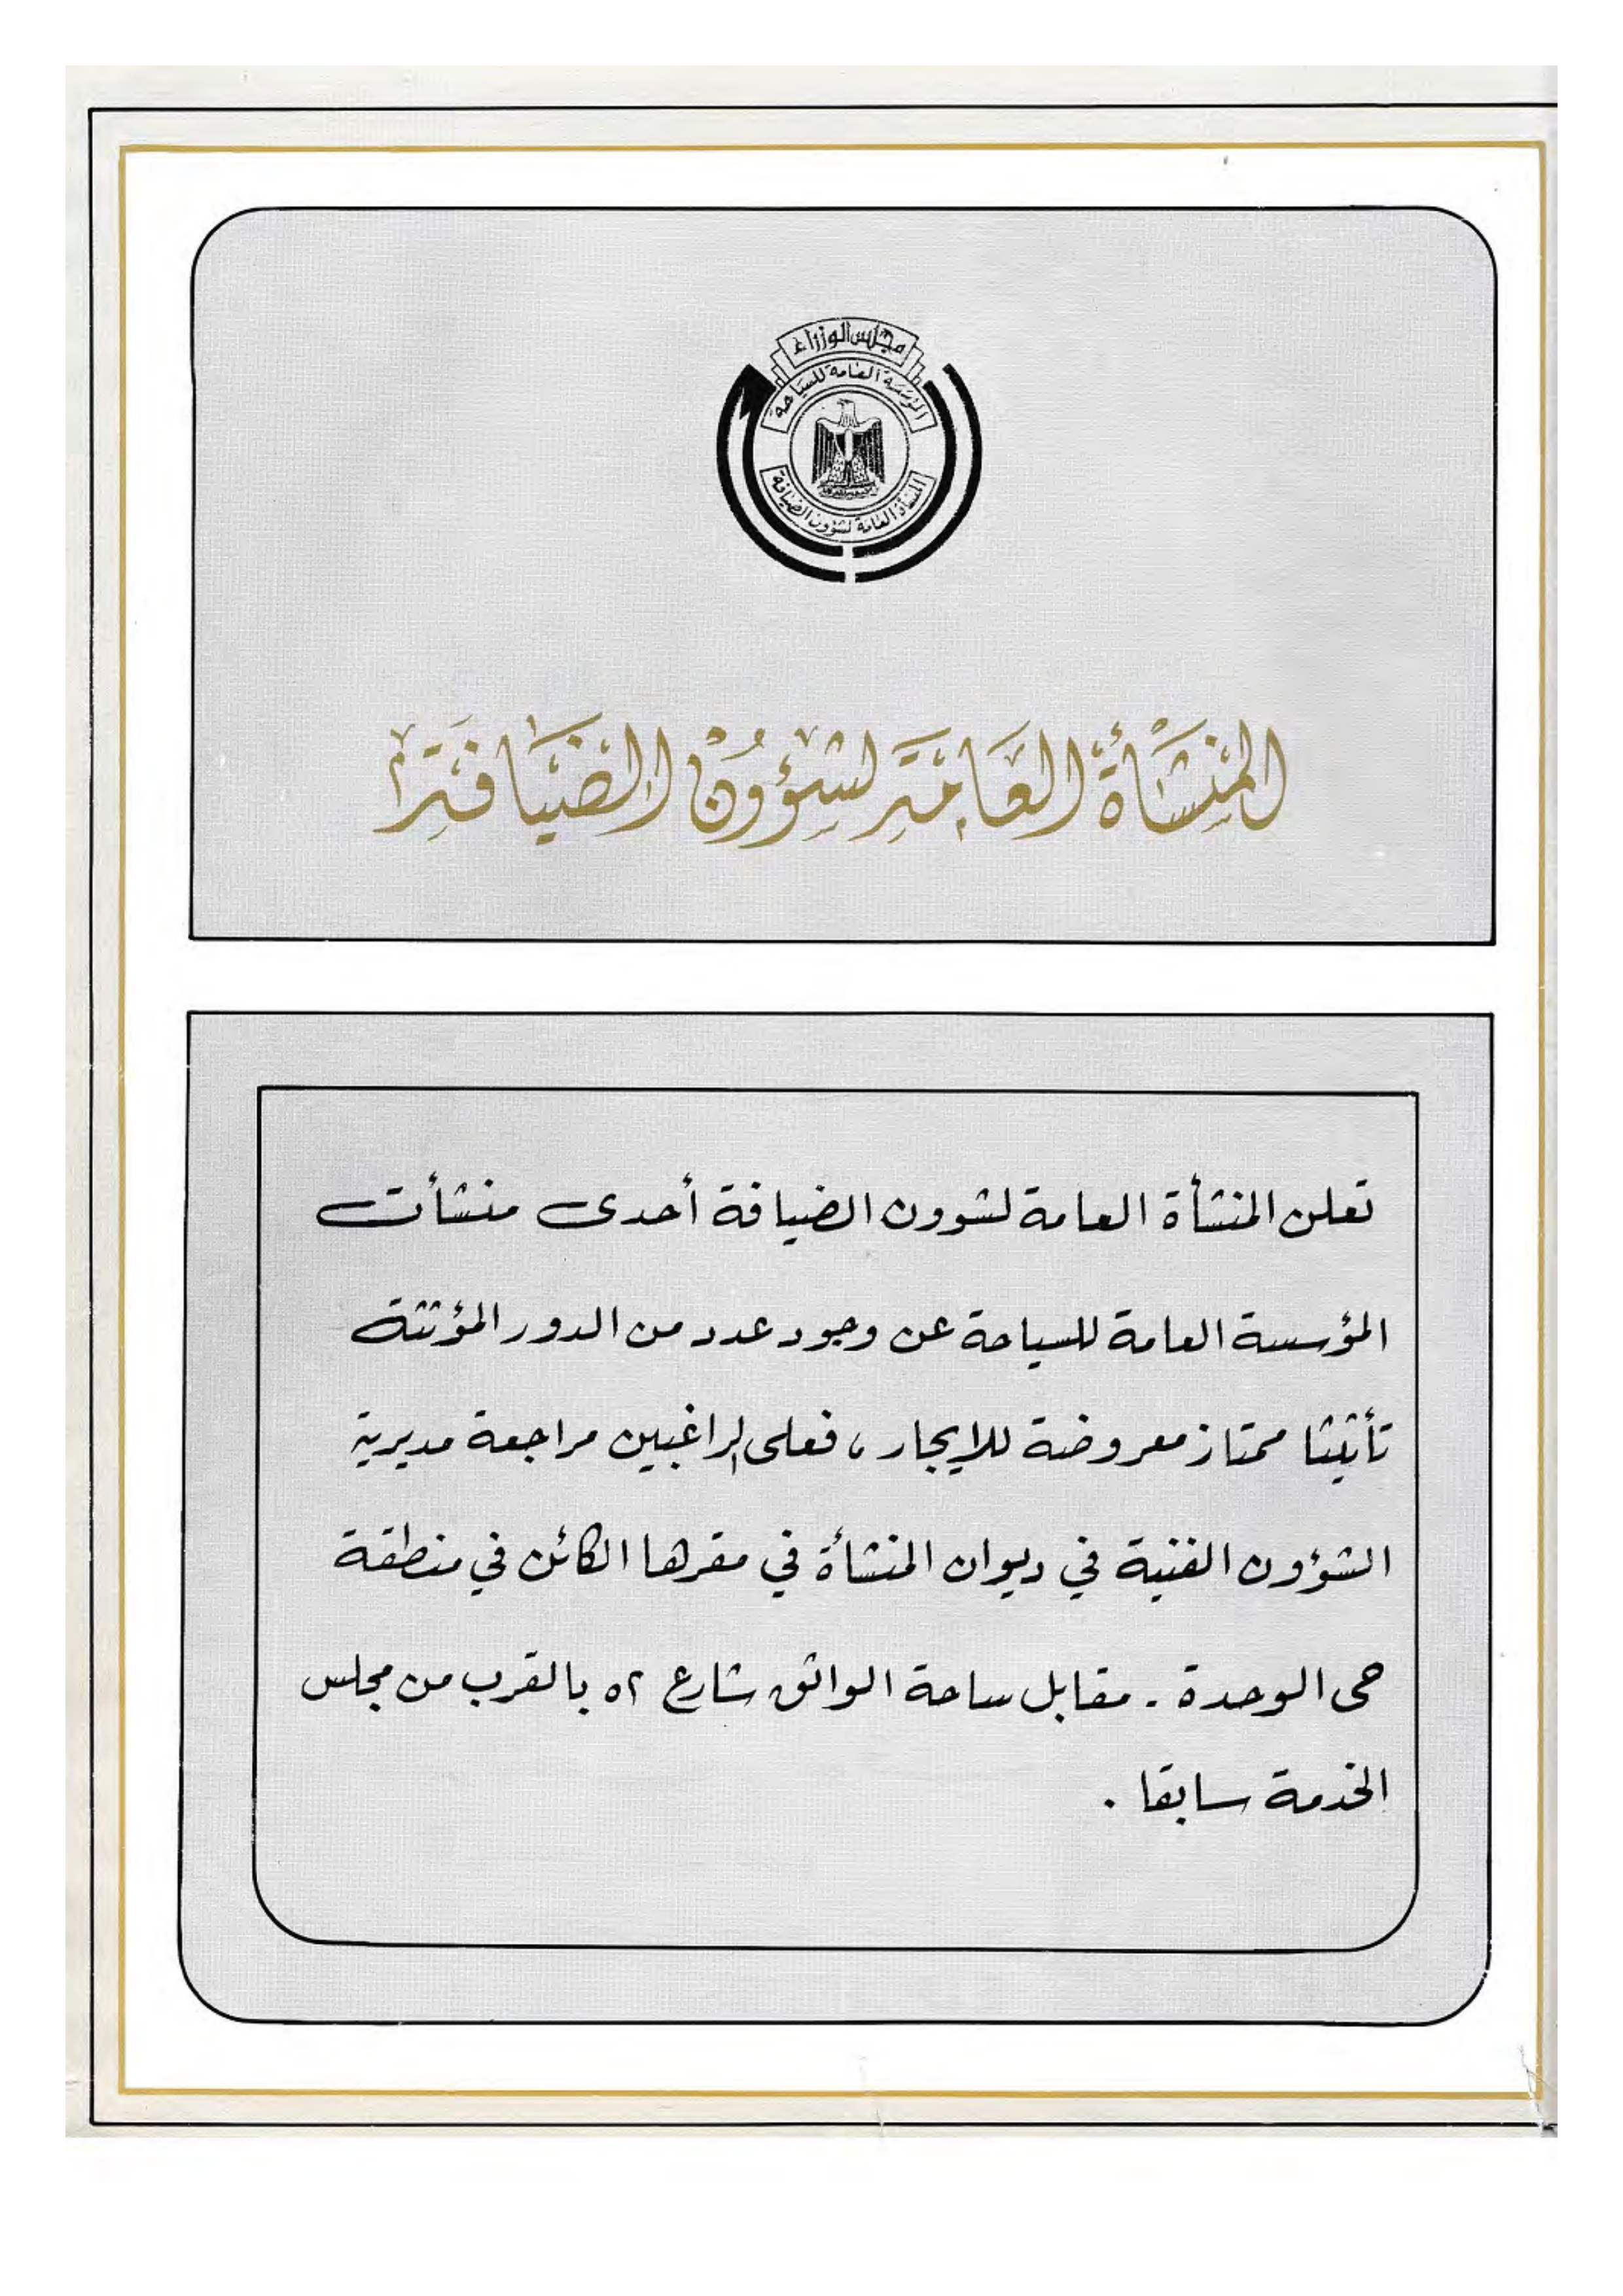 مجلس الوزراء
المؤسسة العامة للسياحة
المنشأة العامة لشؤون الضيافة
المنشأة العامة لشؤون الضيافة
تعلن المنشأة العامة لشوون الضيافة أحدى منشأت
المؤسسة العامة للسياحة عن وجود عدد من الدور المؤثثة
تأثيثا ممتاز معروضة للايجار، فعلى الراغبين مراجعة مديرية
الشؤون الفنية في ديوان المنشأة في مقرها الكائن في منطقة
حى الوحدة - مقابل ساحة الواثق شارع ٥٢ بالقرب من مجلس
الخدمة سابقا .